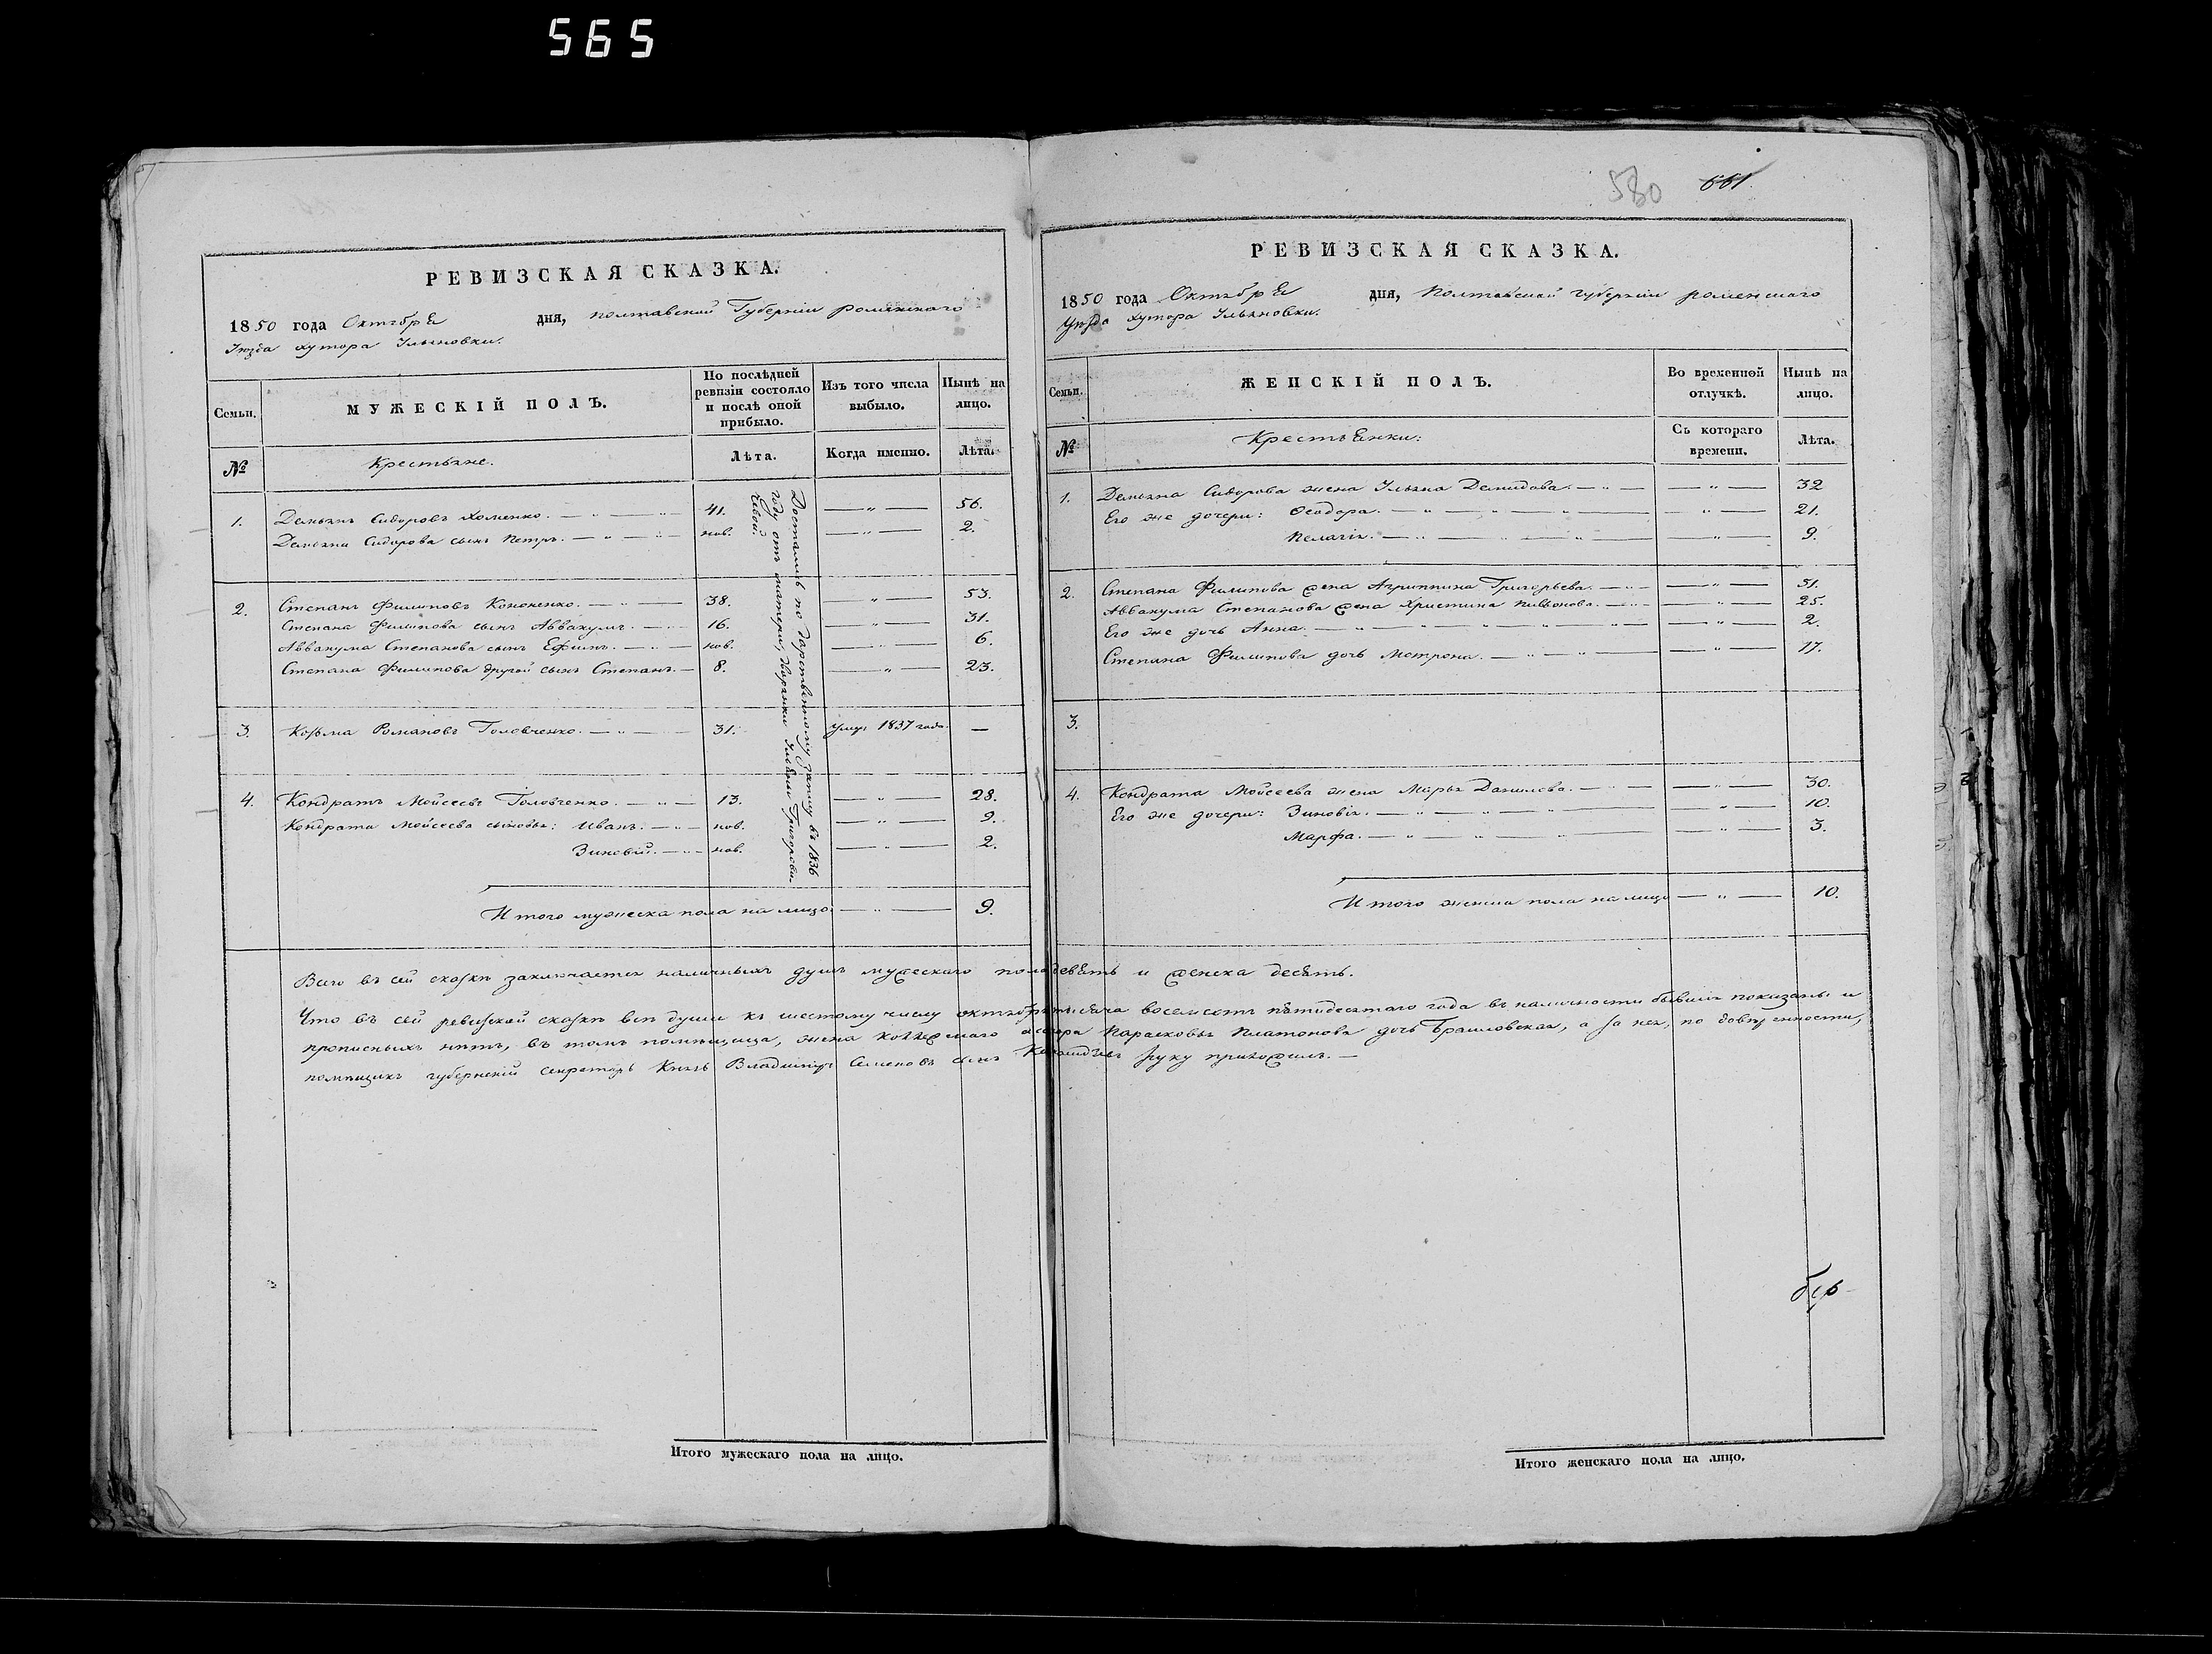 565
580 661
РЕВИЗСКАЯ СКАЗКА.
1850 года Октября дня, полтавской Губернии роменского
Уезда хутора Ильяновки.
Семьи.
МУЖЕСКІЙ ПОЛЪ.
По послѣдней ревизіи состояло и послѣ оной прибыло.
Изъ того числа выбыло.
Нынѣ на лицо.
№
Крестьяне.
Лѣта.
Когда именно.
Лѣта.
1. Демьянъ Сидоровъ Хоменко. — „ — „ — 41. — „ — 56.
Демьяна Сидорова сынъ Петръ. — „ — „ — нов. — „ — 2.
2. Степанъ Филиповъ Кононенко. — „ — 38. — „ — 53.
Степана Филипова сынъ Аввакумъ. — „ — 16. — „ — 31.
Аввакума Степанова сынъ Ефимъ. — „ — нов. — „ — 6.
Степана Филипова другой сынъ Степанъ. — 8. — „ — 23.
3. Козьма Романовъ Головченко. — „ — 31. Умр. 1837 года. —
4. Кондратъ Мойсеевъ Головченко. — „ — 13. — „ — 28.
Кондрата Мойсеева сыновья: Иванъ. — „ — нов. — „ — 9.
Зиновій. — „ — нов. — „ — 2.
Достались по дарственному запису въ 1836
году отъ матери, Параски Ульяни Григорьев-
Итого мужеска пола на лицо — „ — 9.
РЕВИЗСКАЯ СКАЗКА.
1850 года Октября дня, Полтавской губернии роменского
Уезда хутора Ильяновки.
Семьи.
ЖЕНСКІЙ ПОЛЪ.
Во временной отлучкѣ.
Нынѣ на лицо.
№
Крестьянки:
Съ котораго времени.
Лѣта.
1. Демьяна Сидорова жена Ульяна Демидова. — „ — — „ — 32
Его же дочери: Феодора. — „ — „ — „ — — „ — 21.
Пелагія. — „ — „ — „ — — „ — 9.
2. Степана Филипова жена Агриппина Григорьева. — „ — — „ — 51.
Аввакума Степанова жена Христина Пивьонова. — „ — — „ — 25.
Его же дочь Анна. — „ — „ — „ — „ — — „ — 2.
Степана Филипова дочь Мотрона. — „ — „ — — „ — 17.
3.
4. Кондрата Мойсеева жена Марья Данилова. — „ — — „ — 30.
Его же дочери: Зиновія. — „ — „ — „ — — „ — 10.
Марфа. — „ — „ — „ — — „ — 3.
Итого женска пола на лицо — „ — 10.
Всего въ сей сказкѣ заключается наличныхъ душъ мужескаго пола девять и женска десять.
Что въ сей ревизской сказкѣ всѣ души къ шестому числу октября тысяча восемсотъ пятидесятаго года въ наличности бывшія показаны и
прописныхъ нѣтъ, въ томъ помѣщица, жена колежскаго асесора Парасковья Платонова дочь Браиловская, а за нея, по довѣренности,
помѣщикъ губернскій секретарь Князь Владимиръ Семеновъ сынъ руку приложилъ. —
Итого мужескаго пола на лицо.
Итого женскаго пола на лицо.